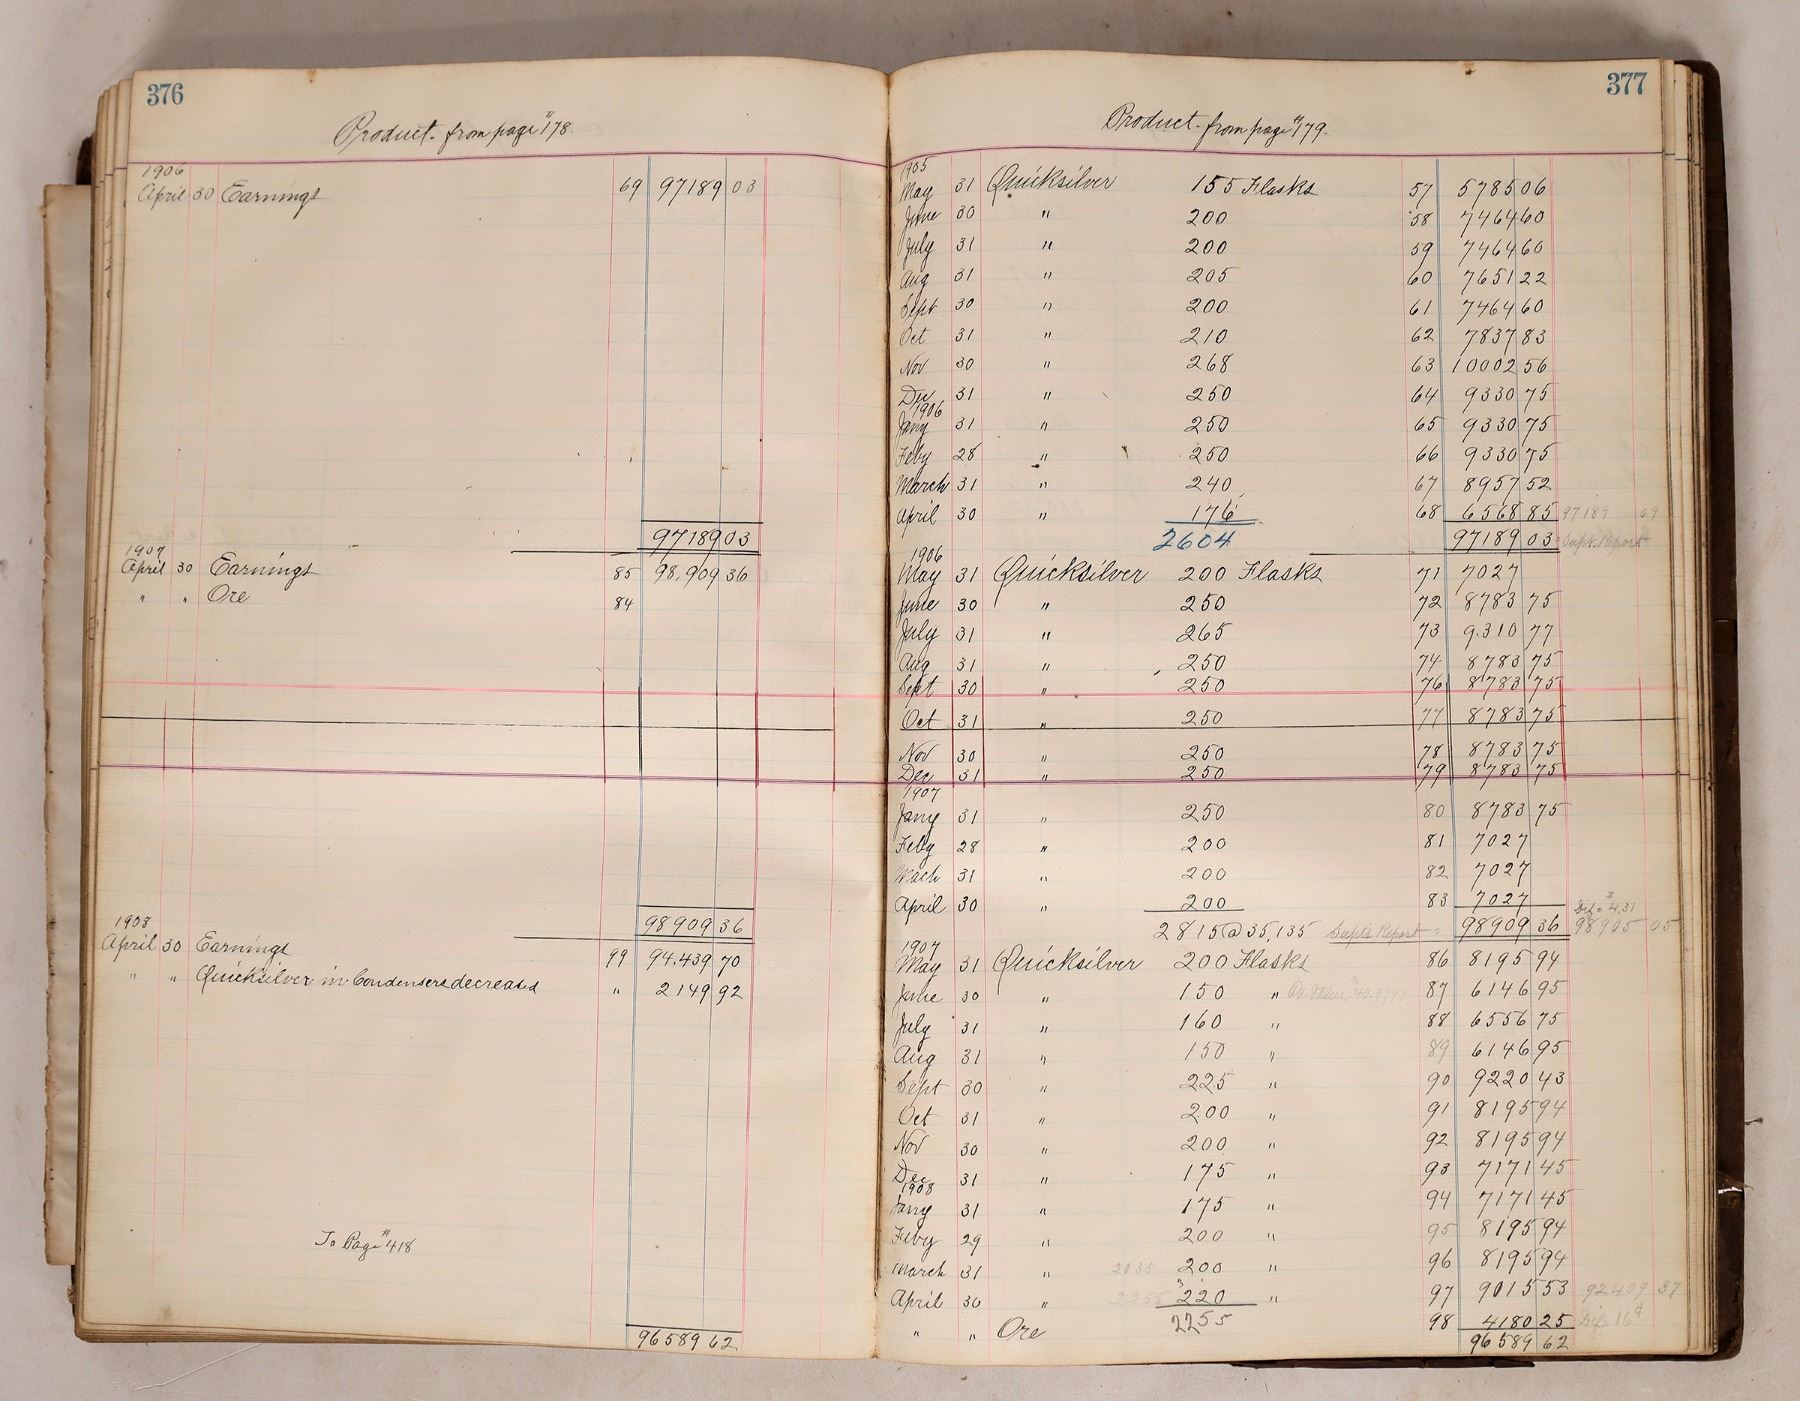 376
Product - from page "178.
1906
April 30 Earnings 69 97189 03
97189 03
1907
April 30 Earnings 85 98,909 36
" " Ore 84
98909 36
1908
April 30 Earnings 99 94.439 70
" " Quicksilver in Condensers decreased " 2149 92
To Page "418
96589 62
377
Product - from page "179.
1905
May 31 Quicksilver 155 Flasks 57 5785 06
June 30 " 200 58 7464 60
July 31 " 200 59 7464 60
Aug 31 " 205 60 7651 22
Sept 30 " 200 61 7464 60
Oct 31 " 210 62 7837 83
Nov 30 " 268 63 10002 56
Dec 31 " 250 64 9330 75
1906
Jany 31 " 250 65 9330 75
Feby 28 " 250 66 9330 75
March 31 " 240 67 8957 52
April 30 " 176 68 6568 85 97189 09
2604 97189 03 Supts Report
1906
May 31 Quicksilver 200 Flasks 71 7027
June 30 " 250 72 8783 75
July 31 " 265 73 9.310 77
Aug 31 " 250 74 8783 75
Sept 30 " 250 76 8783 75
Oct 31 " 250 77 8783 75
Nov 30 " 250 78 8783 75
Dec 31 " 250 79 8783 75
1907
Jany 31 " 250 80 8783 75
Feby 28 " 200 81 7027
Mach 31 " 200 82 7027
April 30 " 200 83 7027 Dif = 4.31
2815 @ 35,135 Supts Report = 98909 36 98905 05
1907
May 31 Quicksilver 200 Flasks 86 8195 94
June 30 " 150 " 40.9797 87 6146 95
July 31 " 160 " 88 6556 75
Aug 31 " 150 " 89 6146 95
Sept 30 " 225 " 90 9220 43
Oct 31 " 200 " 91 8195 94
Nov 30 " 200 " 92 8195 94
Dec 31 " 175 " 93 7171 45
1908
Jany 31 " 175 " 94 7171 45
Feby 29 " 200 " 95 8195 94
March 31 " 2035 200 " 96 8195 94
April 30 " 2255 220 " 97 9015 53 92409 37
" " Ore 2255 98 4180 25 Dif 16¢
96589 62